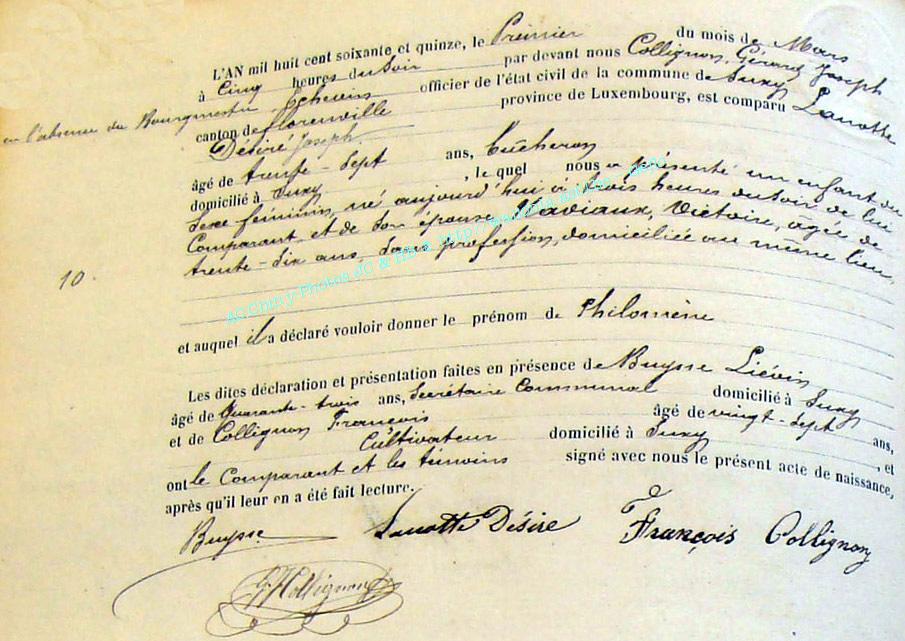 L'AN mil huit cent soixante et quinze, le Premier du mois de Mars
à Cinq heures du Soir par devant nous Collignon, Gérard Joseph
en l'absence du Bourgmestre Echevin officier de l'état civil de la commune de Suxy
canton de Florenville province de Luxembourg, est comparu Lanotte
Désiré Joseph
âgé de trente-sept ans, bucheron
domicilié à Suxy, le quel nous a présenté un enfant du
sexe feminin, né aujourd'hui à trois heures du soir de lui
Comparant et de son épouse Naviaux, Victoire, âgée de
trente-six ans, sans profession, domiciliée au même lieu
10.
et auquel il a déclaré vouloir donner le prénom de Philomène
Les dites déclaration et présentation faites en présence de Buysse Liévin
âgé de Quarante-trois ans, Secrétaire Communal domicilié à Suxy
et de Collignon François âgé de vingt-sept ans,
Cultivateur domicilié à Suxy, et
ont le Comparant et les témoins signé avec nous le présent acte de naissance,
après qu'il leur en a été fait lecture.
Buysse Lanotte Désiré François Collignon
G J Collignon